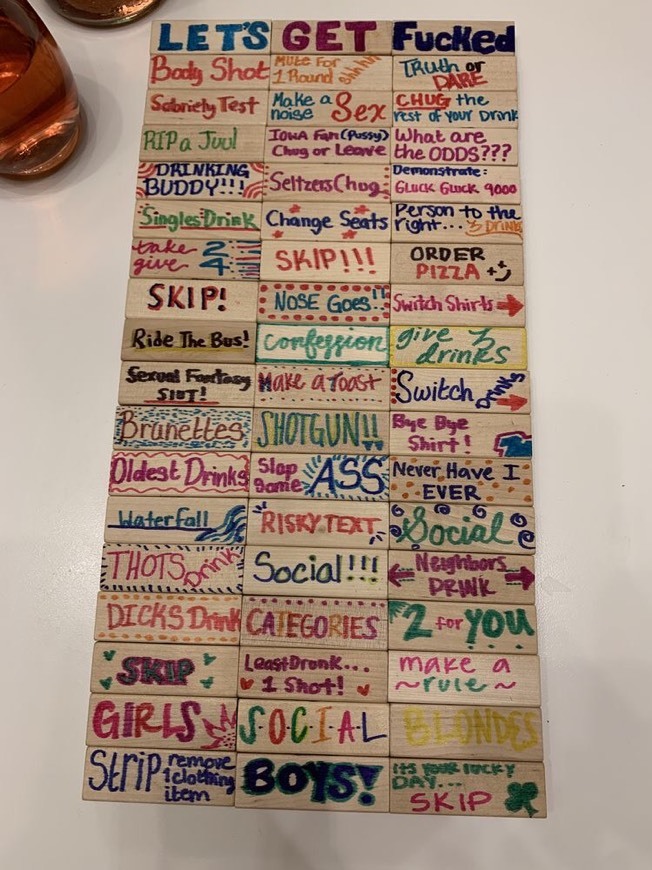 LET'S GET Fucked
Body Shot
Mute For
1 Round shhhhh
Truth or
DARE
Sobriety Test
Make a
noise Sex
CHUG the
rest of your Drink
RIP a Juul
Iowa Fan (Pussy)
Chug or Leave
What are
the ODDS???
DRINKING
BUDDY!!!
Seltzers Chug
Demonstrate:
Gluck Gluck 9000
Singles Drink
Change Seats
Person to the
right... 3 Drinks
take 2
give 4
SKIP!!!
ORDER
PIZZA
SKIP!
NOSE GOES!!
Switch Shirts
Ride The Bus!
Confession
give 3
drinks
Sexual Fantasy
SLUT!
Make a Toast
Switch Drinks
Brunettes
SHOTGUN!!
Bye Bye
Shirt!
Oldest Drinks
Slap
Some ASS
Never Have I
EVER
Waterfall
RISKY TEXT
Social
THOTS Drink
Social!!!
Neighbors
DRINK
DICKS Drink
CATEGORIES
2 for YOU
SKIP
Least Drunk...
1 Shot!
make a
~rule~
GIRLS
S.O.C.I.A.L
BLONDES
Strip remove
1 clothing
item
BOYS!
It's YOUR LUCKY
DAY...
SKIP